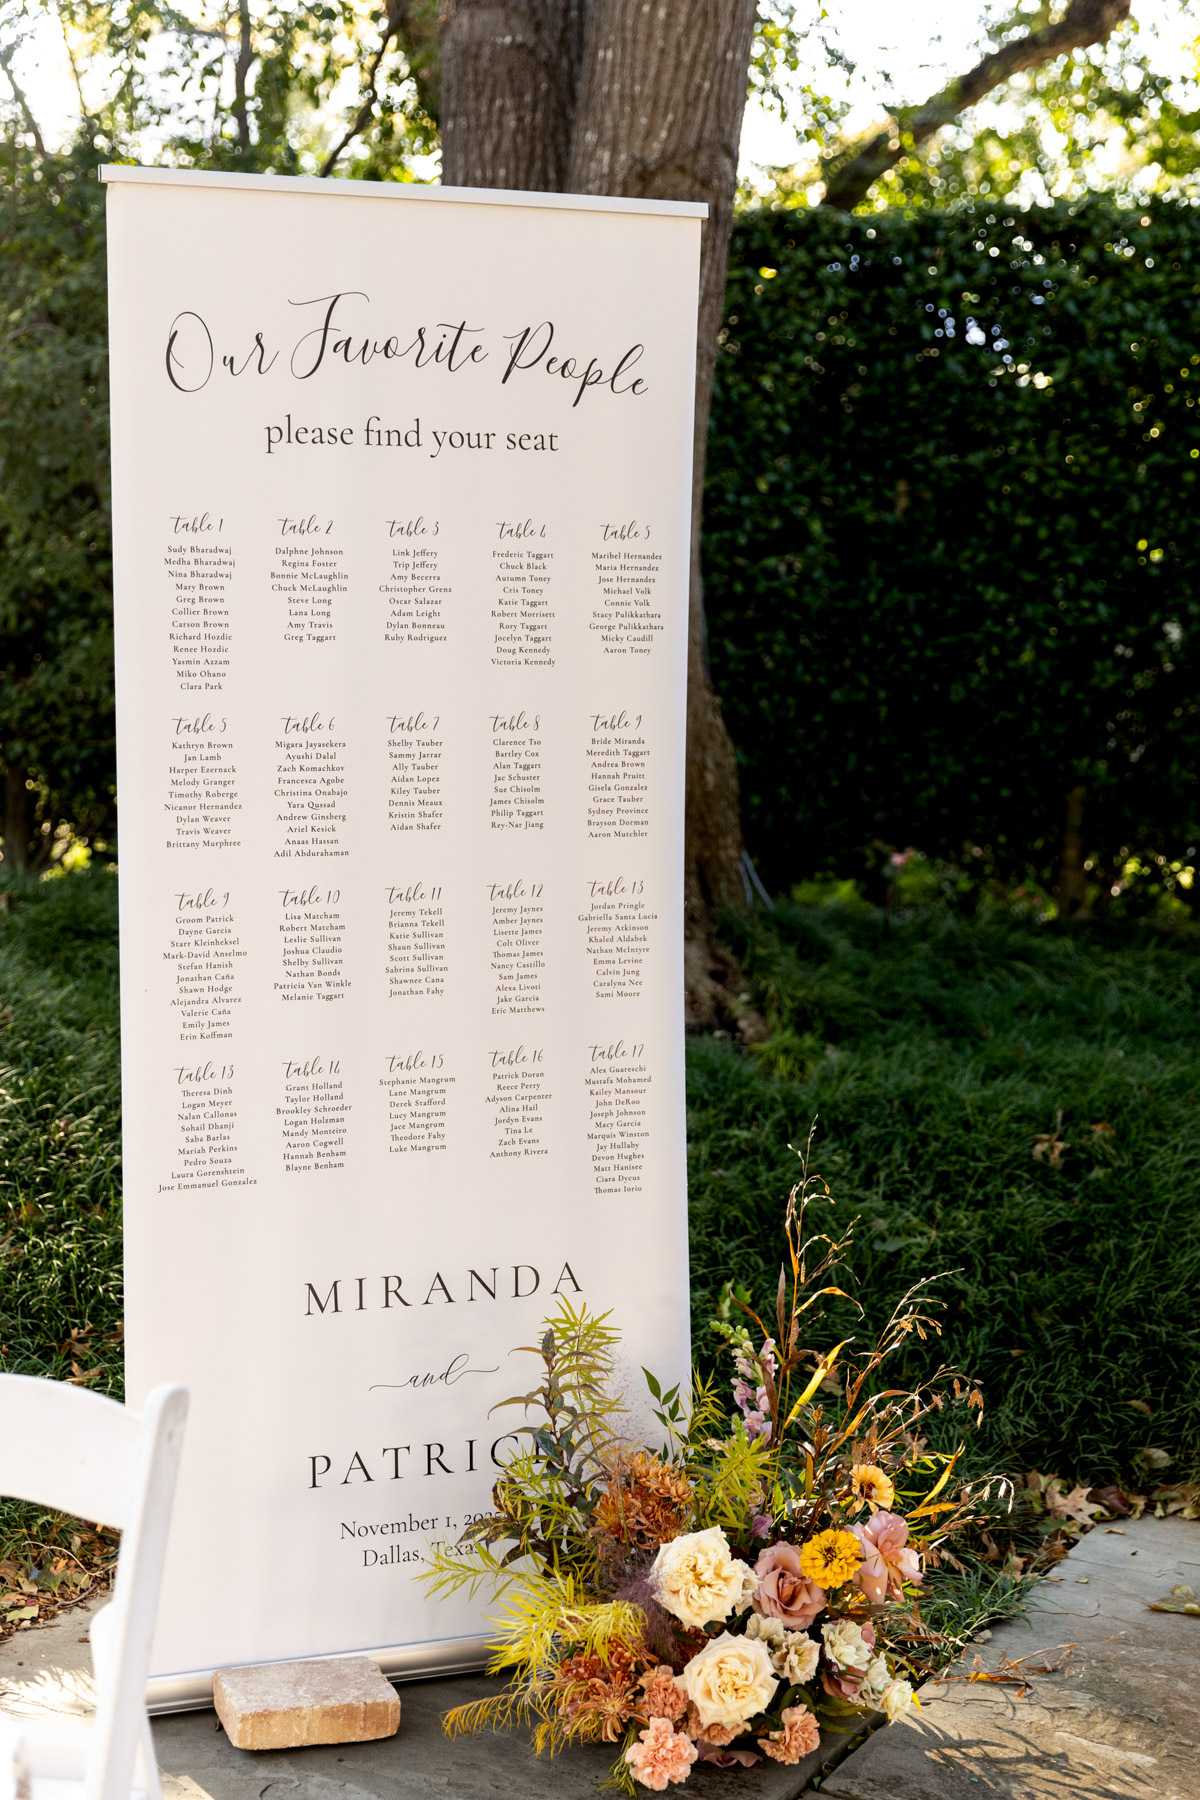 Our Favorite People
please find your seat
Table 1
Sudy Bharadwaj
Medha Bharadwaj
Nina Bharadwaj
Mary Brown
Greg Brown
Collier Brown
Carson Brown
Richard Hozdic
Renee Hozdic
Yasmin Azzam
Miko Ohano
Clara Park
Table 2
Dalphne Johnson
Regina Foster
Bonnie McLaughlin
Chuck McLaughlin
Steve Long
Lana Long
Amy Travis
Greg Taggart
Table 3
Link Jeffery
Trip Jeffery
Amy Becerra
Christopher Grenz
Oscar Salazar
Adam Leight
Dylan Bonneau
Ruby Rodriguez
Table 4
Frederic Taggart
Chuck Black
Autumn Toney
Cris Toney
Katie Taggart
Robert Morrisett
Rory Taggart
Jocelyn Taggart
Doug Kennedy
Victoria Kennedy
Table 5
Maribel Hernandez
Maria Hernandez
Jose Hernandez
Michael Volk
Connie Volk
Stacy Pulikkathara
George Pulikkathara
Micky Caudill
Aaron Toney
Table 5
Kathryn Brown
Jan Lamb
Harper Ezernack
Melody Granger
Timothy Roberge
Nicanor Hernandez
Dylan Weaver
Travis Weaver
Brittany Murphree
Table 6
Migara Jayasekera
Ayushi Dalal
Zach Komachkov
Francesca Agobe
Christina Onabajo
Yara Qussad
Andrew Ginsberg
Ariel Kesick
Anaas Hassan
Adil Abdurahaman
Table 7
Shelby Tauber
Sammy Jarrar
Ally Tauber
Aidan Lopez
Kiley Tauber
Dennis Meaux
Kristin Shafer
Aidan Shafer
Table 8
Clarence Tso
Bartley Cox
Alan Taggart
Jac Schuster
Sue Chisolm
James Chisolm
Philip Taggart
Rey-Nar Jiang
Table 9
Bride Miranda
Meredith Taggart
Andrea Brown
Hannah Pruitt
Gisela Gonzalez
Grace Tauber
Sydney Province
Brayson Dorman
Aaron Mutchler
Table 9
Groom Patrick
Dayne Garcia
Starr Kleinheksel
Mark-David Anselmo
Stefan Hanish
Jonathan Caña
Shawn Hodge
Alejandra Alvarez
Valerie Caña
Emily James
Erin Koffman
Table 10
Lisa Matcham
Robert Matcham
Leslie Sullivan
Joshua Claudio
Shelby Sullivan
Nathan Bonds
Patricia Van Winkle
Melanie Taggart
Table 11
Jeremy Tekell
Brianna Tekell
Katie Sullivan
Shaun Sullivan
Scott Sullivan
Sabrina Sullivan
Shawnee Cana
Jonathan Fahy
Table 12
Jeremy Jaynes
Amber Jaynes
Lisette James
Colt Oliver
Thomas James
Nancy Castillo
Sam James
Alexa Livoti
Jake Garcia
Eric Matthews
Table 13
Jordan Pringle
Gabriella Santa Lucia
Jeremy Atkinson
Khaled Aldabek
Nathan McIntyre
Emma Levine
Calvin Jung
Caralyna Nee
Sami Moore
Table 13
Theresa Dinh
Logan Meyer
Nalan Callonas
Sohail Dhanji
Saba Barlas
Mariah Perkins
Pedro Souza
Laura Gorenshtein
Jose Emmanuel Gonzalez
Table 14
Grant Holland
Taylor Holland
Brookley Schroeder
Logan Holzman
Mandy Monteiro
Aaron Cogwell
Hannah Benham
Blayne Benham
Table 15
Stephanie Mangrum
Lane Mangrum
Derek Stafford
Lucy Mangrum
Jace Mangrum
Theodore Fahy
Luke Mangrum
Table 16
Patrick Doran
Reece Perry
Adyson Carpenter
Alina Hail
Jordyn Evans
Tina Le
Zach Evans
Anthony Rivera
Table 17
Alex Guareschi
Mustafa Mohamed
Kailey Mansour
John DeRoo
Joseph Johnson
Macy Garcia
Marquis Winston
Jay Hullaby
Devon Hughes
Matt Hanisee
Ciara Dycus
Thomas Iorio
MIRANDA
and
PATRICK
November 1, 2025
Dallas, Texas